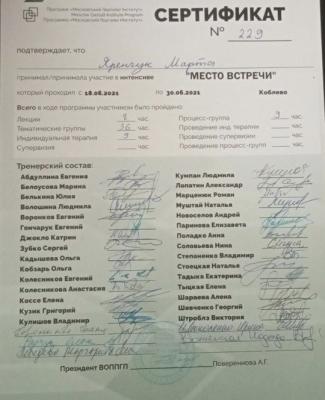 Программа «Московский Гештальт Институт»
Moscow Gestalt Institute Program
Программа «Московський Гештальт Інститут»
СЕРТИФИКАТ
№ 229
подтверждает, что
Марта
принимал/принимала участие в интенсиве "МЕСТО ВСТРЕЧИ"
который проходил с 18.08.2021 по 30.08.2021 Коблево
Всего в ходе программы участником было пройдено:
Лекции 8 час. Процесс-группа 9 час.
Тематические группы 36 час. Проведение инд. терапии час.
Индивидуальная терапия 9 час. Проведение супервизии час.
Супервизия час. Проведение процесс-групп час.
Тренерский состав:
Абдуллина Евгения
Белоусова Марина
Белькина Юлия
Волошина Людмила
Воронков Евгений
Гончарук Евгения
Джокло Катрин
Зубко Сергей
Кадышева Ольга
Кобзарь Ольга
Колесников Евгений
Колесникова Анастасия
Коссе Елена
Кузик Григорий
Кулишов Владимир
Кунпан Людмила
Лопаткин Александр
Марценюк Роман
Муштай Наталья
Новоселов Андрей
Паринова Елизавета
Поладко Анна
Соловьева Нина
Степаненко Владимир
Стоецкая Наталья
Тадыка Екатерина
Тыцкая Елена
Шараева Алена
Шевченко Георгий
Штроблз Виктория
Президент ВОППГП Повереннова А.Г.